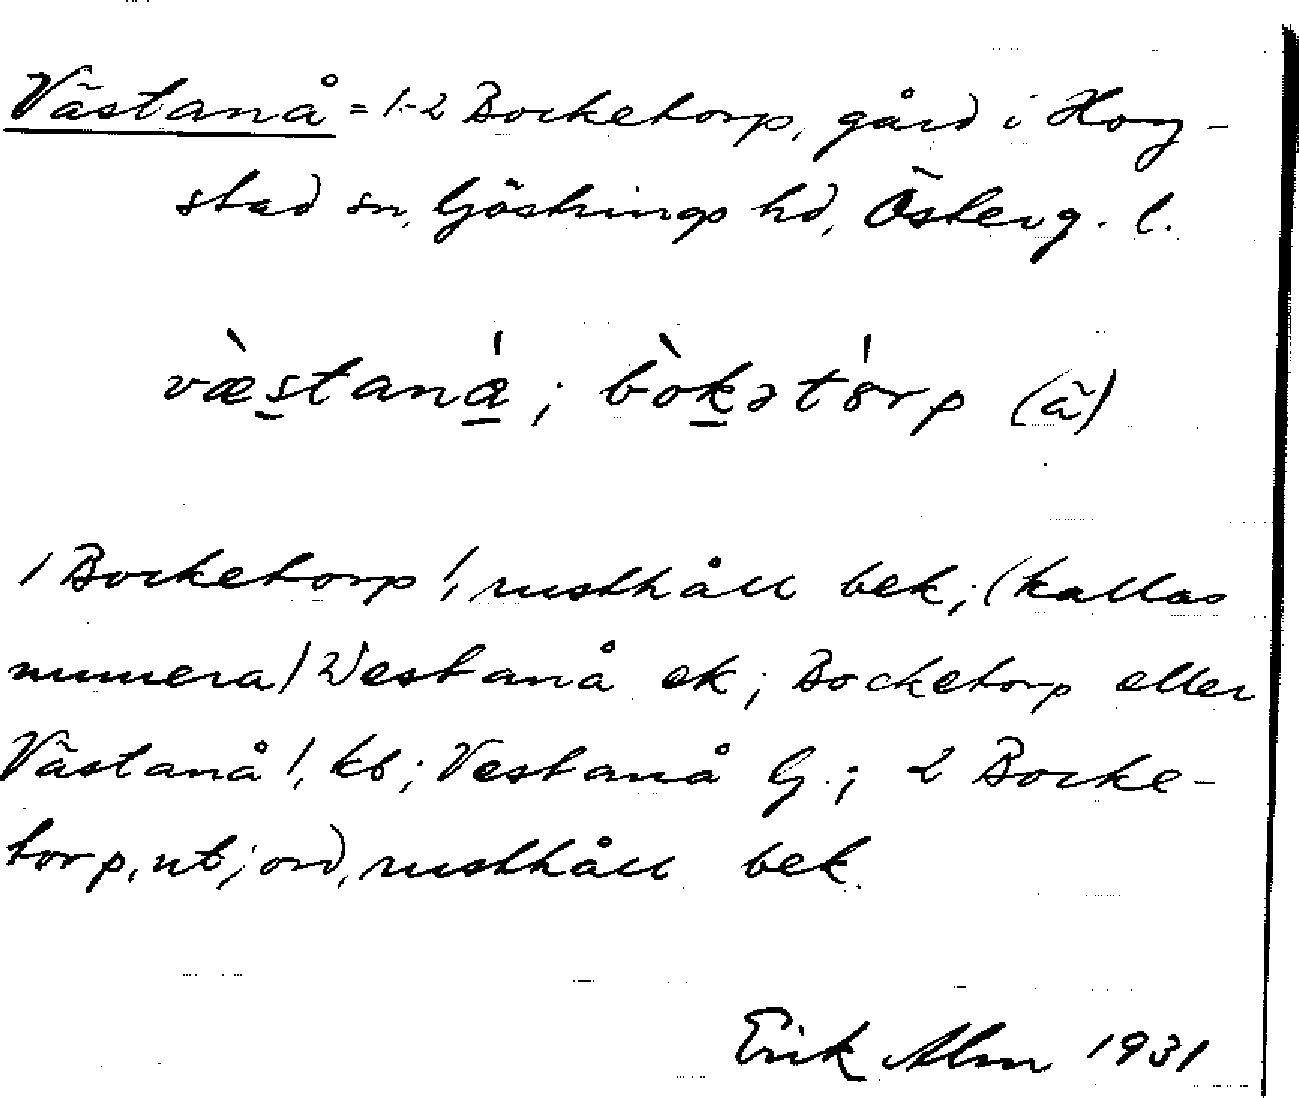 Västanå = 1-2 Bocketorp, gård i Hog-
stad sn, Göstrings hd, Österg. l.
væ̀stanǻ; bòkətórp (ã)
1 Bocketorp !, rusthåll bek; (kallas
numera) Westanå ek; Bocketorp eller
Västanå !, kb; Vestanå G.; 2 Bocke-
torp, utjord, rusthåll bek.
Erik Alm 1931